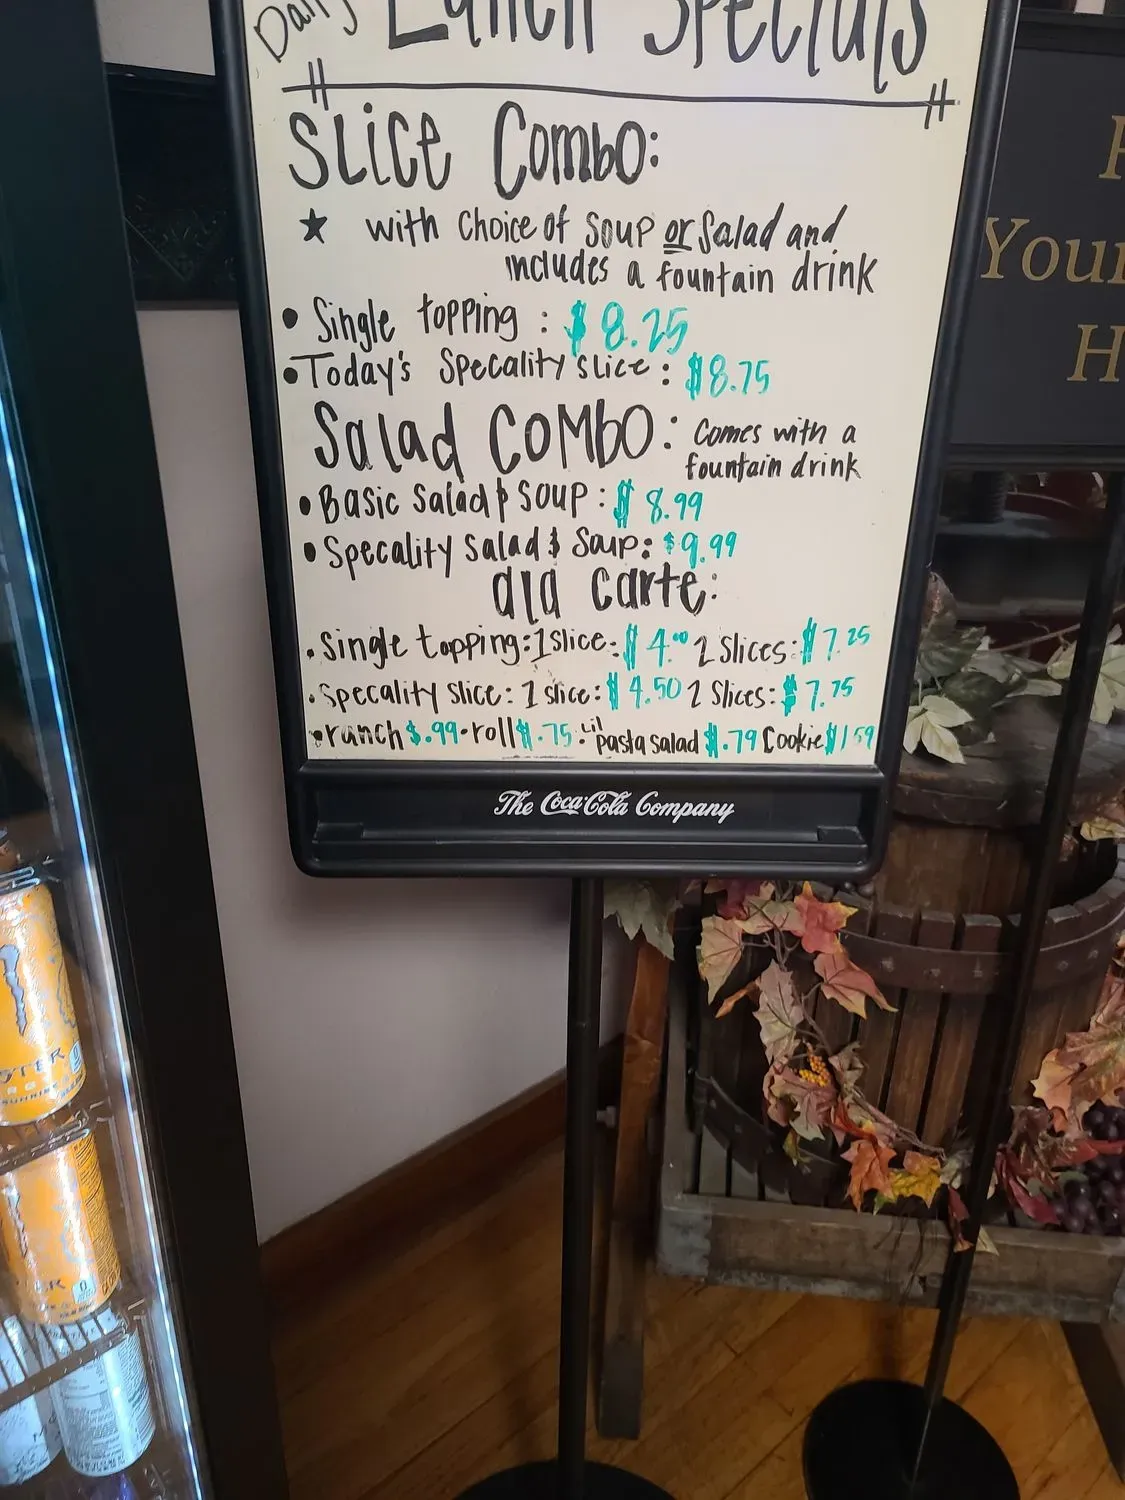 Daily Lunch Specials
SLICE Combo:
★ with choice of soup or Salad and
includes a fountain drink
• Single topping : $8.25
• Today's Specality slice : $8.75
Salad COMBO: Comes with a
fountain drink
• Basic Salad & SOUP : $8.99
• Specality Salad & Soup: $9.99
ala carte:
• Single topping: 1 slice: $4.00 2 Slices: $7.25
• Specality slice: 1 slice: $4.50 2 Slices: $7.75
• ranch $.99 • roll $.75 • Lil pasta salad $.79 Cookie $1.59
The Coca-Cola Company
Your
H